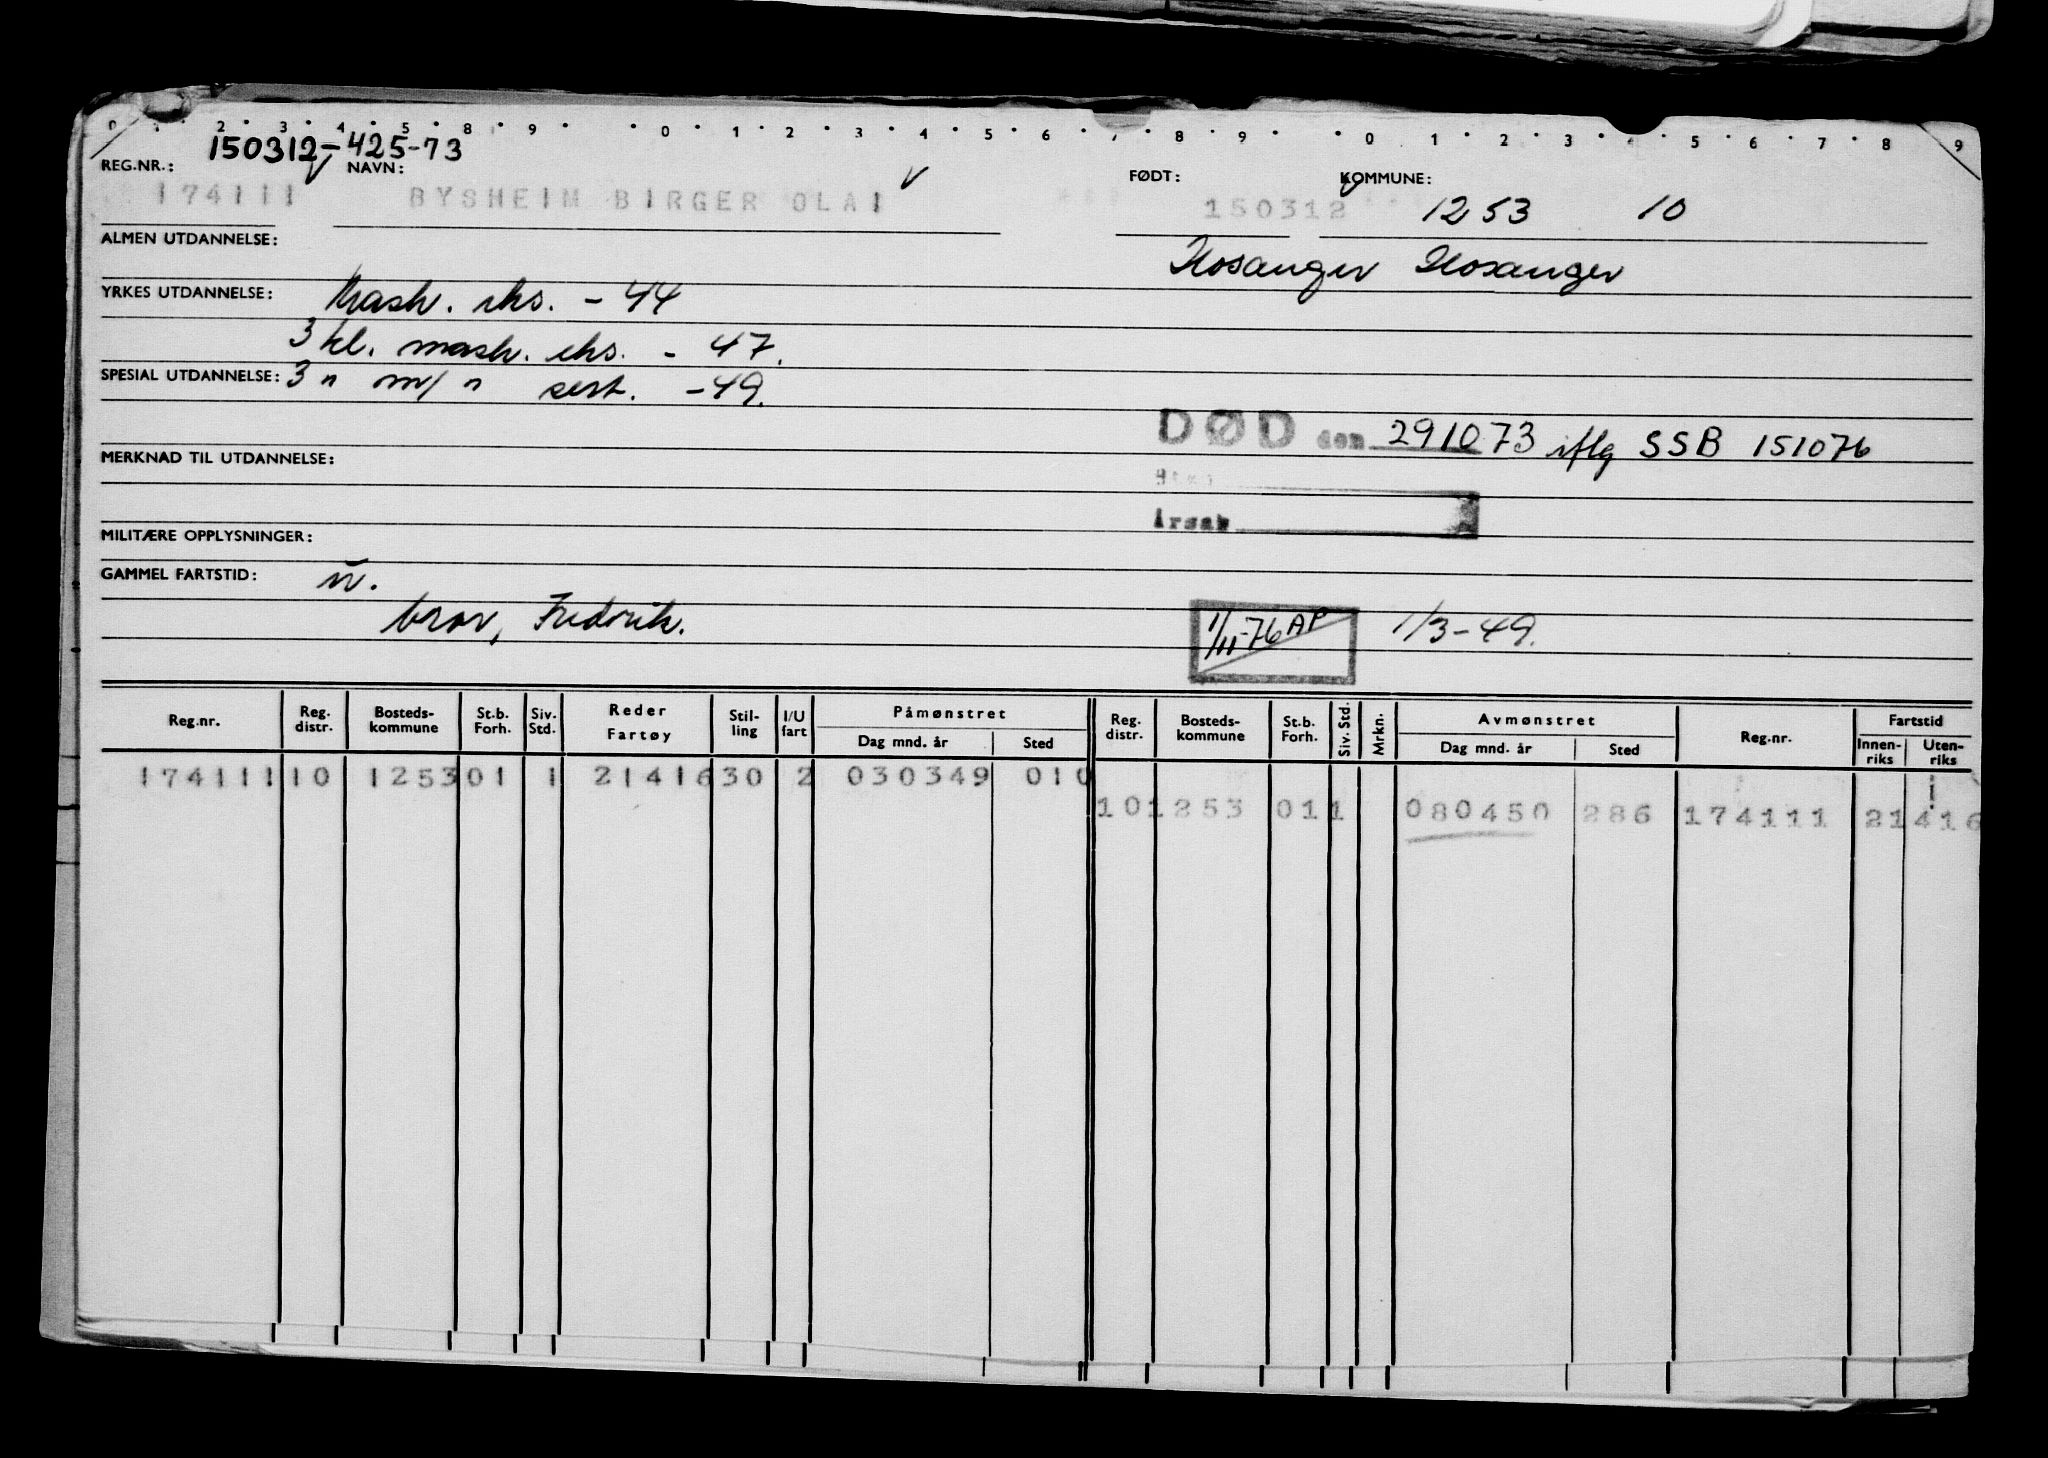 0 . . 2 . 3 . 4 . 5 . 8 . 9 . . 0 . 1 . 2 . 3 . 4 . 5 . 6 . . 8 . 9 . . 0 . 1 . 2 . 3 . 4 . 5 . 6 . 7 . 8 . 9
150312-425-73
REG.NR.: NAVN: FØDT: KOMMUNE:
174111 BYSHEIM BIRGER OLAI 150312 1253 10
ALMEN UTDANNELSE: Hosanger Hosanger
YRKES UTDANNELSE: Mask. eks. - 44
3 kl. mask. eks. - 47.
SPESIAL UTDANNELSE: 3 " m/ " sert. - 49.
DØD den 291073 iflg SSB 151076
MERKNAD TIL UTDANNELSE:
Årsak
MILITÆRE OPPLYSNINGER:
GAMMEL FARTSTID:
bror, Fredrik. 1/11-76 AP 1/3-49.
Reg.nr. Reg. distr. Bosteds-kommune St.b. Forh. Siv. Std. Reder Fartøy Stil-ling I/U fart Påmønstret Dag mnd. år Sted Reg. distr. Bosteds-kommune St.b. Forh. Siv. Std. Mrkn. Avmønstret Dag mnd. år Sted Reg.nr. Fartstid Innen-riks Uten-riks
174111 10 1253 01 1 21416 30 2 030349 010
10 1253 01 1 080450 286 174111 21416